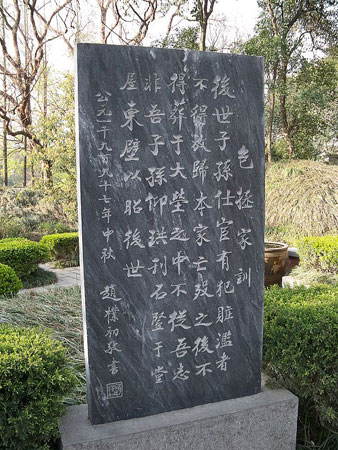 包拯家訓
後世子孫仕官有犯賍濫者
不得放歸本家亡歿之後不
得葬于大塋之中不從吾志
非吾子孫仰珙刊石竪于堂
屋東壁以昭後世
公元一千九百九十七年中秋
趙樸初敬書